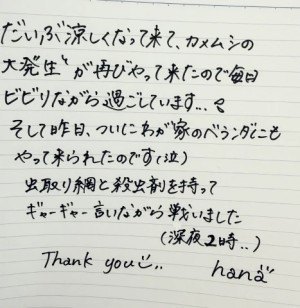 だいぶ涼しくなって来て、カメムシの
大発生が再びやって来たので毎日
ビビりながら過ごしています...
そして昨日、ついにわが家のベランダにも
やって来られたのです(泣)
虫取り網と殺虫剤を持って
ギャーギャー言いながら戦いました
(深夜2時..)
Thank you
hana